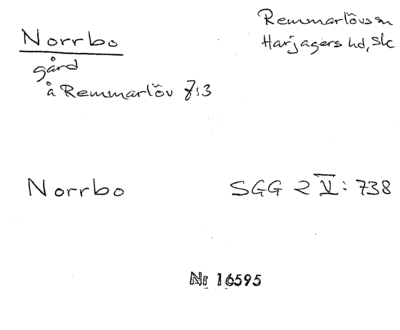 Norrbo
Remmarlövs sn
Harjagers hd, Sk
gård
å Remmarlöv 7:3
Norrbo
SGG 2 V: 738
Nr 16595